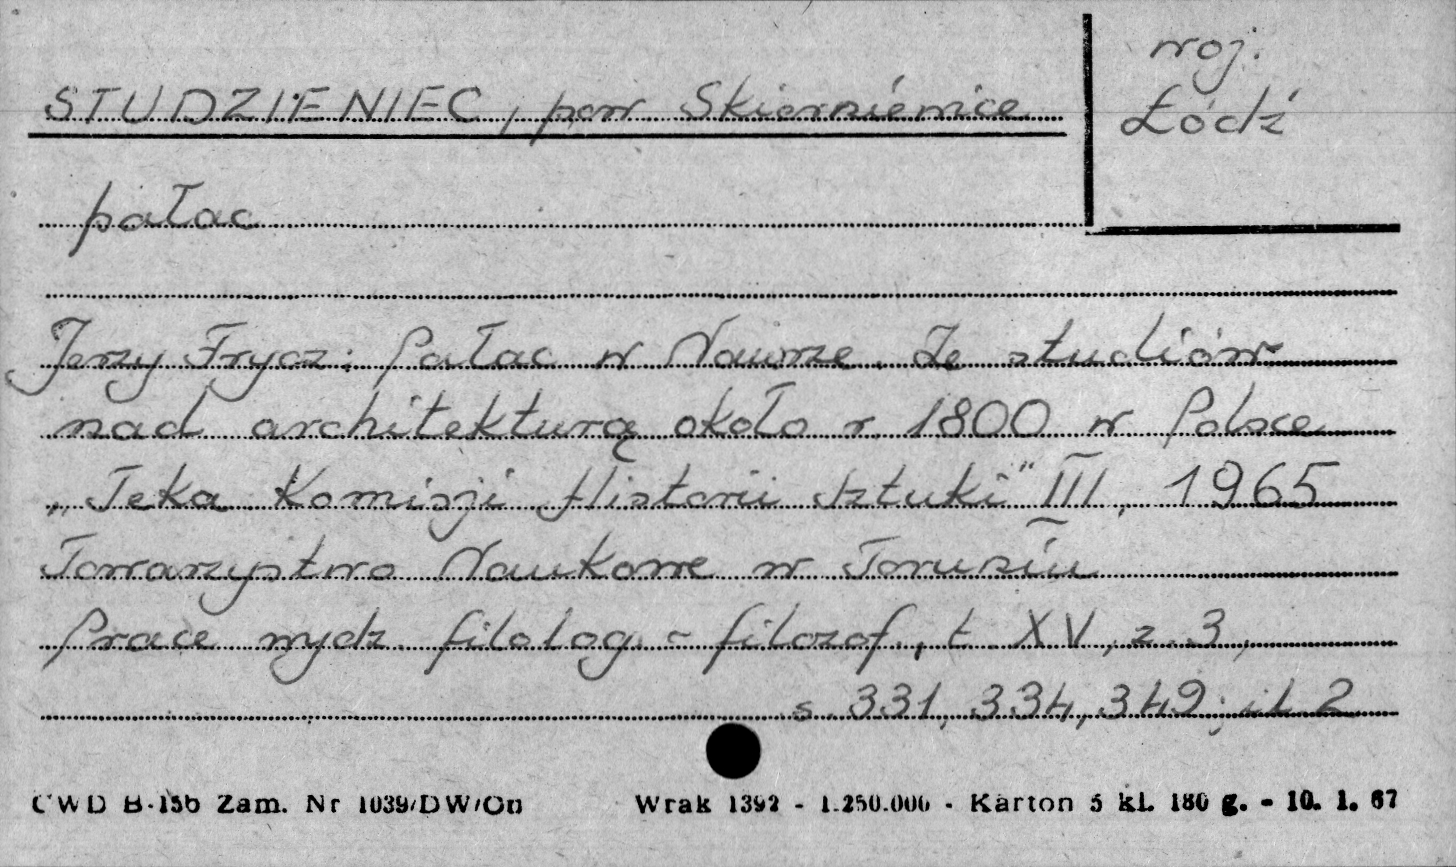 STUDZIENIEC, pow. Skierniewice
woj.
Łódź
pałac
Jerzy Frycz: Pałac w Nawrze. Ze studiów
nad architekturą około r. 1800 w Polsce
„Teka Komisji Historii Sztuki" III, 1965
Towarzystwo Naukowe w Toruniu
Prace wydz. filolog. - filozof., t. XV, z. 3,
s. 331, 334, 349; il. 2
CWD B-15b Zam. Nr 1039/DW/On Wrak 1392 - 1.250.000 - Karton 5 kl. 180 g. - 10. 1. 67